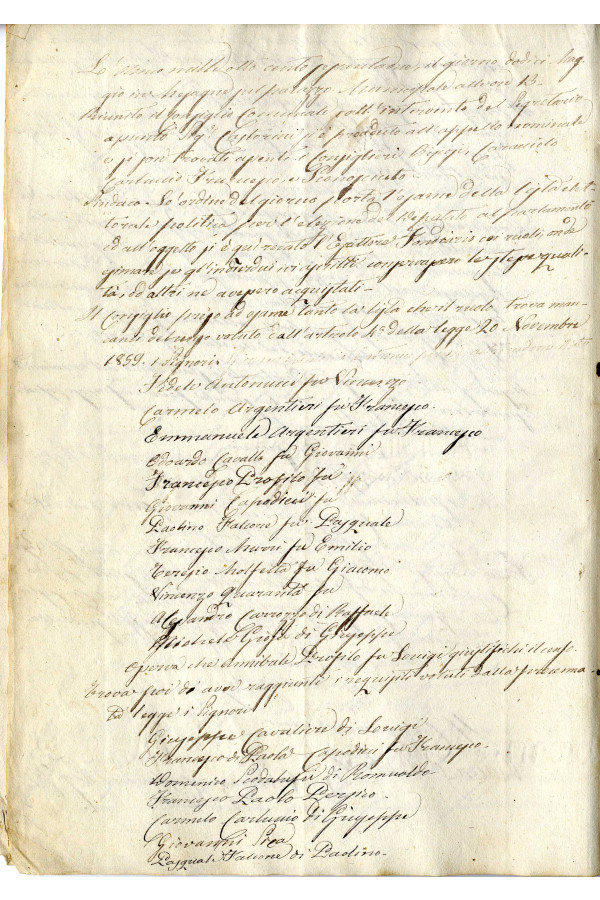 L'anno mille otto cento settantatre, il giorno dodici Mag
gio in Mesagne sul palazzo Municipale alle ore 13.
Riunito il Consiglio Comunale coll'intervento del Segretario
apunto Sigr Castorini si è proceduto all'appello nominale
e si son trovati assenti i Consiglieri Caracciolo
Carluccio Francesco e Sconosciuto
Sindaco. L'ordine del giorno porta l'esame della lista elet-
torale politica per l'elezione del Deputato al parlamento
ed all'oggetto si è qui recato l'Esattore Fondiario coi ruoli onde
esiminare se gl'individui ivi ascritti conservassero le stesse quali-
tà, ed altri ne avessero acquistati-
Il Consiglio preso ad esame tanto la lista che il ruolo trova man-
canti del censo voluto dall'articolo 1º della legge 20 Novembre
1859. i Signori
Fedele Antonucci fu Vincenzo
Carmelo Argentieri fu Francesco.
Emmanuele Argentieri fu Francesco
Edoardo Cavallo fu Giovanni
Francesco Profilo fu
Giovanni Capodieci fu
Paolino Falcone fu Pasquale
Francesco Murri fu Emilio
Teresio Molfetta fu Giacomo
Vincenzo Quaranta fu
Alessandro Carrozzo di Raffaele
Micchele Gioja di Giuseppe
Osserva che Annibale Profilo fu Luigi giustifichi il censo
Trova poi di aver raggiunti i requisiti voluti dalla
legge i Signori
Giuseppe Cavaliere di Luigi
Francesco di Paola Capodieci fu Francesco.
Domenico Scodalufu di Romualdo.
Francesco Paolo Persico.
Carmelo Carluccio di Giuseppe
Giovanni Pica
Pasquale Falcone di Paolino.